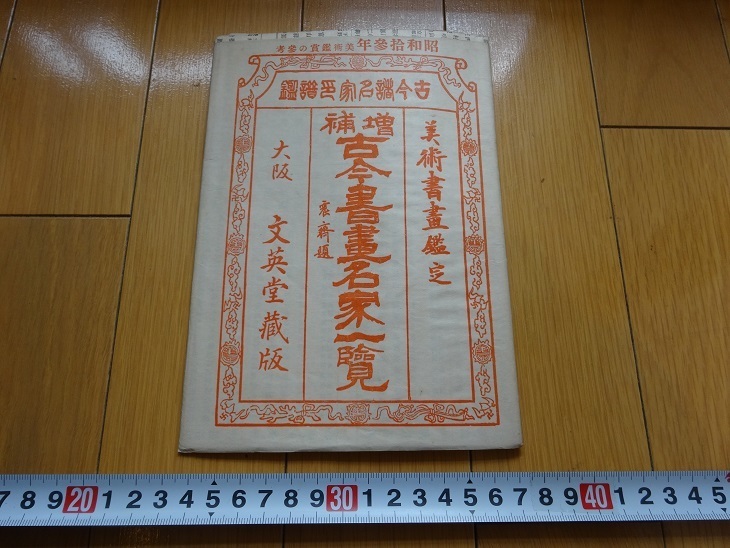 昭和拾參年美術鑑賞の參考
古今諸名家印譜鑑
美術書畫鑑定
增補
古今書畫名家一覽
齋題
大阪 文英堂藏版
7 8 9 20 1 2 3 4 5 6 7 8 9 30 1 2 3 4 5 6 7 8 9 40 1 2 3 4 5